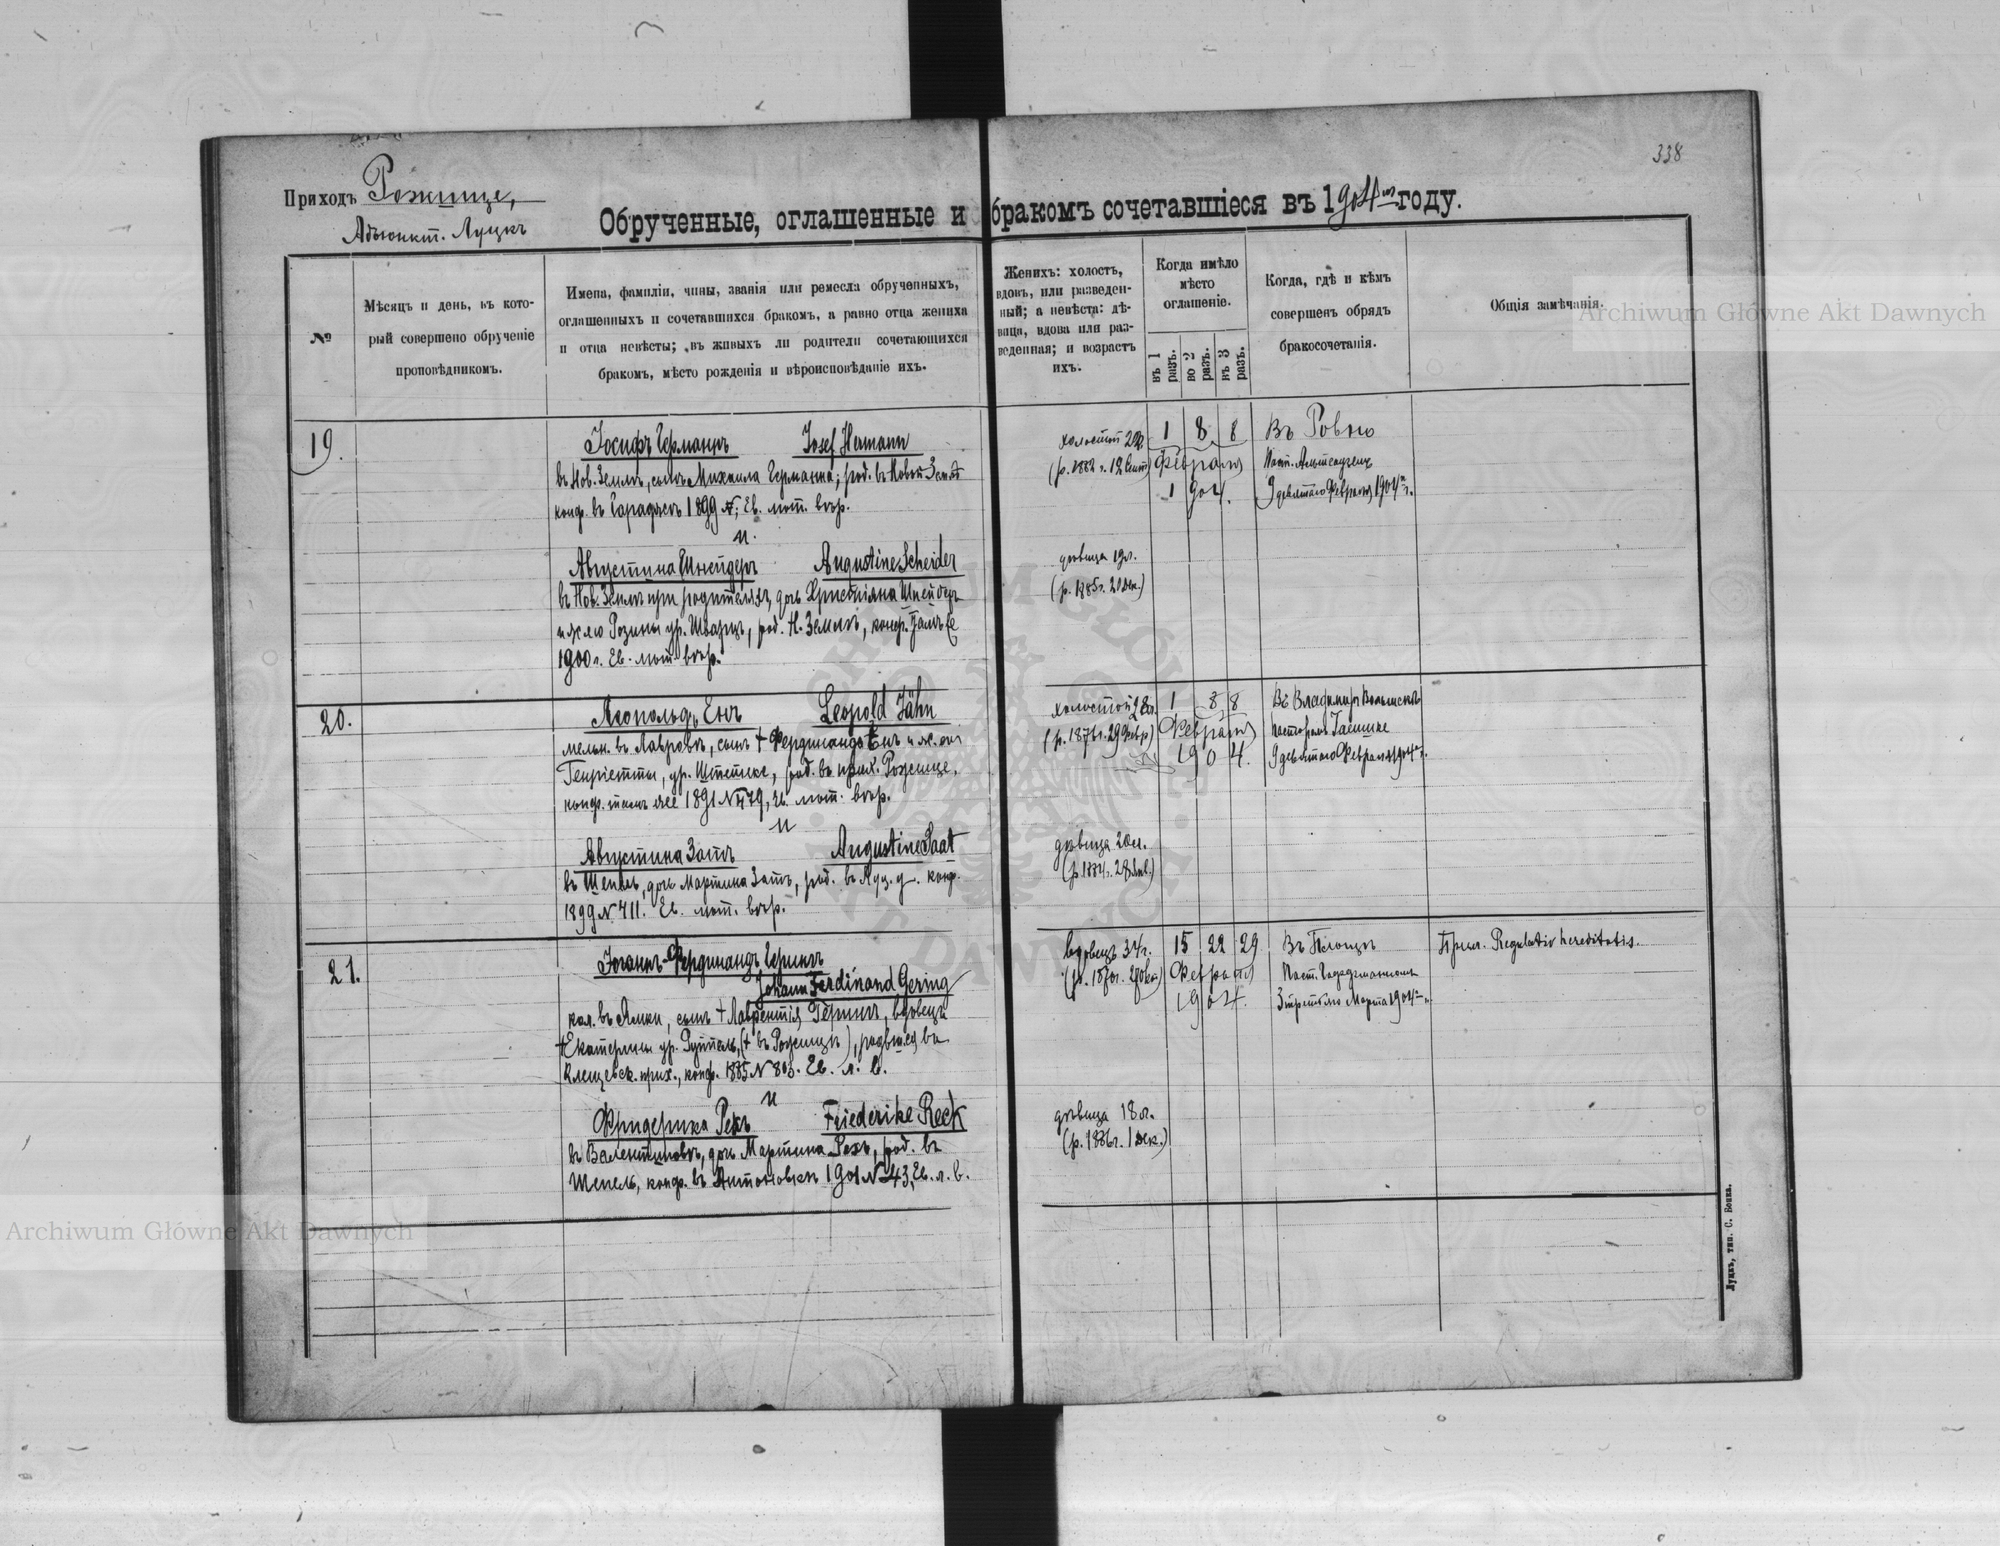 338
Приходъ Рожище,
Адъюнкт. Луцкъ
Обрученные, оглашенные и бракомъ сочетавшіеся въ 1904 году.
№
Мѣсяцъ и день, въ кото-
рый совершено обрученіе
проповѣдникомъ.
Имена, фамиліи, чины, званія или ремесла обрученныхъ,
оглашенныхъ и сочетавшихся бракомъ, а равно отца жениха
и отца невѣсты; въ живыхъ ли родители сочетающихся
бракомъ, мѣсто рожденія и вѣроисповѣданіе ихъ.
Женихъ: холостъ,
вдовъ, или разведен-
ный; а невѣста: дѣ-
вица, вдова или раз-
веденная; и возрастъ
ихъ.
Когда имѣло
мѣсто
оглашеніе.
въ 1 разъ.
во 2 разъ.
въ 3 разъ.
Когда, гдѣ и кѣмъ
совершенъ обрядъ
бракосочетанія.
Общія замѣчанія.
19.
Іосифъ Германнъ Josef Hermann
въ Нов. Землѣ, сынъ Михаила Германна; род. въ Новой Землѣ
конф. въ 1899 №; Ев. лют. вѣр.
и
Августина Шнейдеръ Augustine Scheider
въ Нов. Землѣ при родителяхъ, дочь Христіяна Шнейдеръ
и Розины ур. Шварцъ, род. Н. Землѣ, конф. тамъ же
1900 г. Ев. лют. вѣр.
холостой
(р. 1882 г. 12 Сент.)
1 8 8
Февраля
1904.
Въ Ровно
Паст.
9 девятаго Февраля 1904 г.
дѣвица 19 л.
(р. 1885 г. 20 Дек.)
20.
Леопольдъ Енъ Leopold Jähn
мельн. въ Лавровѣ, сынъ † Фердинанда Енъ и
Генріетты, ур. Штетке, род. въ прих. Рожище,
конф. тамъ же 1891 № 479, Ев. лют. вѣр.
и
Августина Затъ Augustine Saat
въ Шепель, дочь Мартина Затъ, род. въ Луц. у. конф.
1899 № 711. Ев. лют. вѣр.
холостой 28 л.
(р. 1876 г. 29 Февр.)
1 8 8
Февраля
1904.
Въ Владиміръ Волынскѣ
пасторомъ
9 девятаго Февраля 1904 г.
дѣвица 20 л.
(р. 1884 г. 28 Янв.)
21.
Іоганнъ-Фердинандъ Герингъ
Johann Ferdinand Gering
кол. въ Ямки, сынъ † Лаврентія Герингъ, вдовецъ
† Екатерины ур. Руппель, († въ Рожищѣ), родился въ
прих., конф. 1885 № 803. Ев. л. в.
и
Фридерика Рекъ Friederike Reck
въ Валентиновкѣ, дочь Мартина Рекъ, род. въ
Шепель, конф. въ Антоновкѣ 1901 № 43, Ев. л. в.
вдовецъ 34 г.
15 22 29
Февраля
1904.
Въ
Паст.
3 третьяго Марта 1904 г.
Regulativ hereditatis.
дѣвица 18 л.
(р. 1886 г. 1 Дек.)
Луцкъ, тип. С. Бонка.
Archiwum Główne Akt Dawnych
Archiwum Główne Akt Dawnych
ARCHIWUM GŁÓWNE · AKT DAWNYCH ·